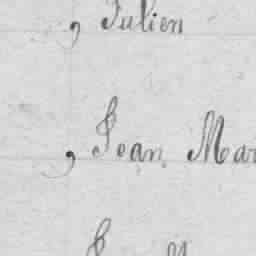 , Julien
, Jean Mar